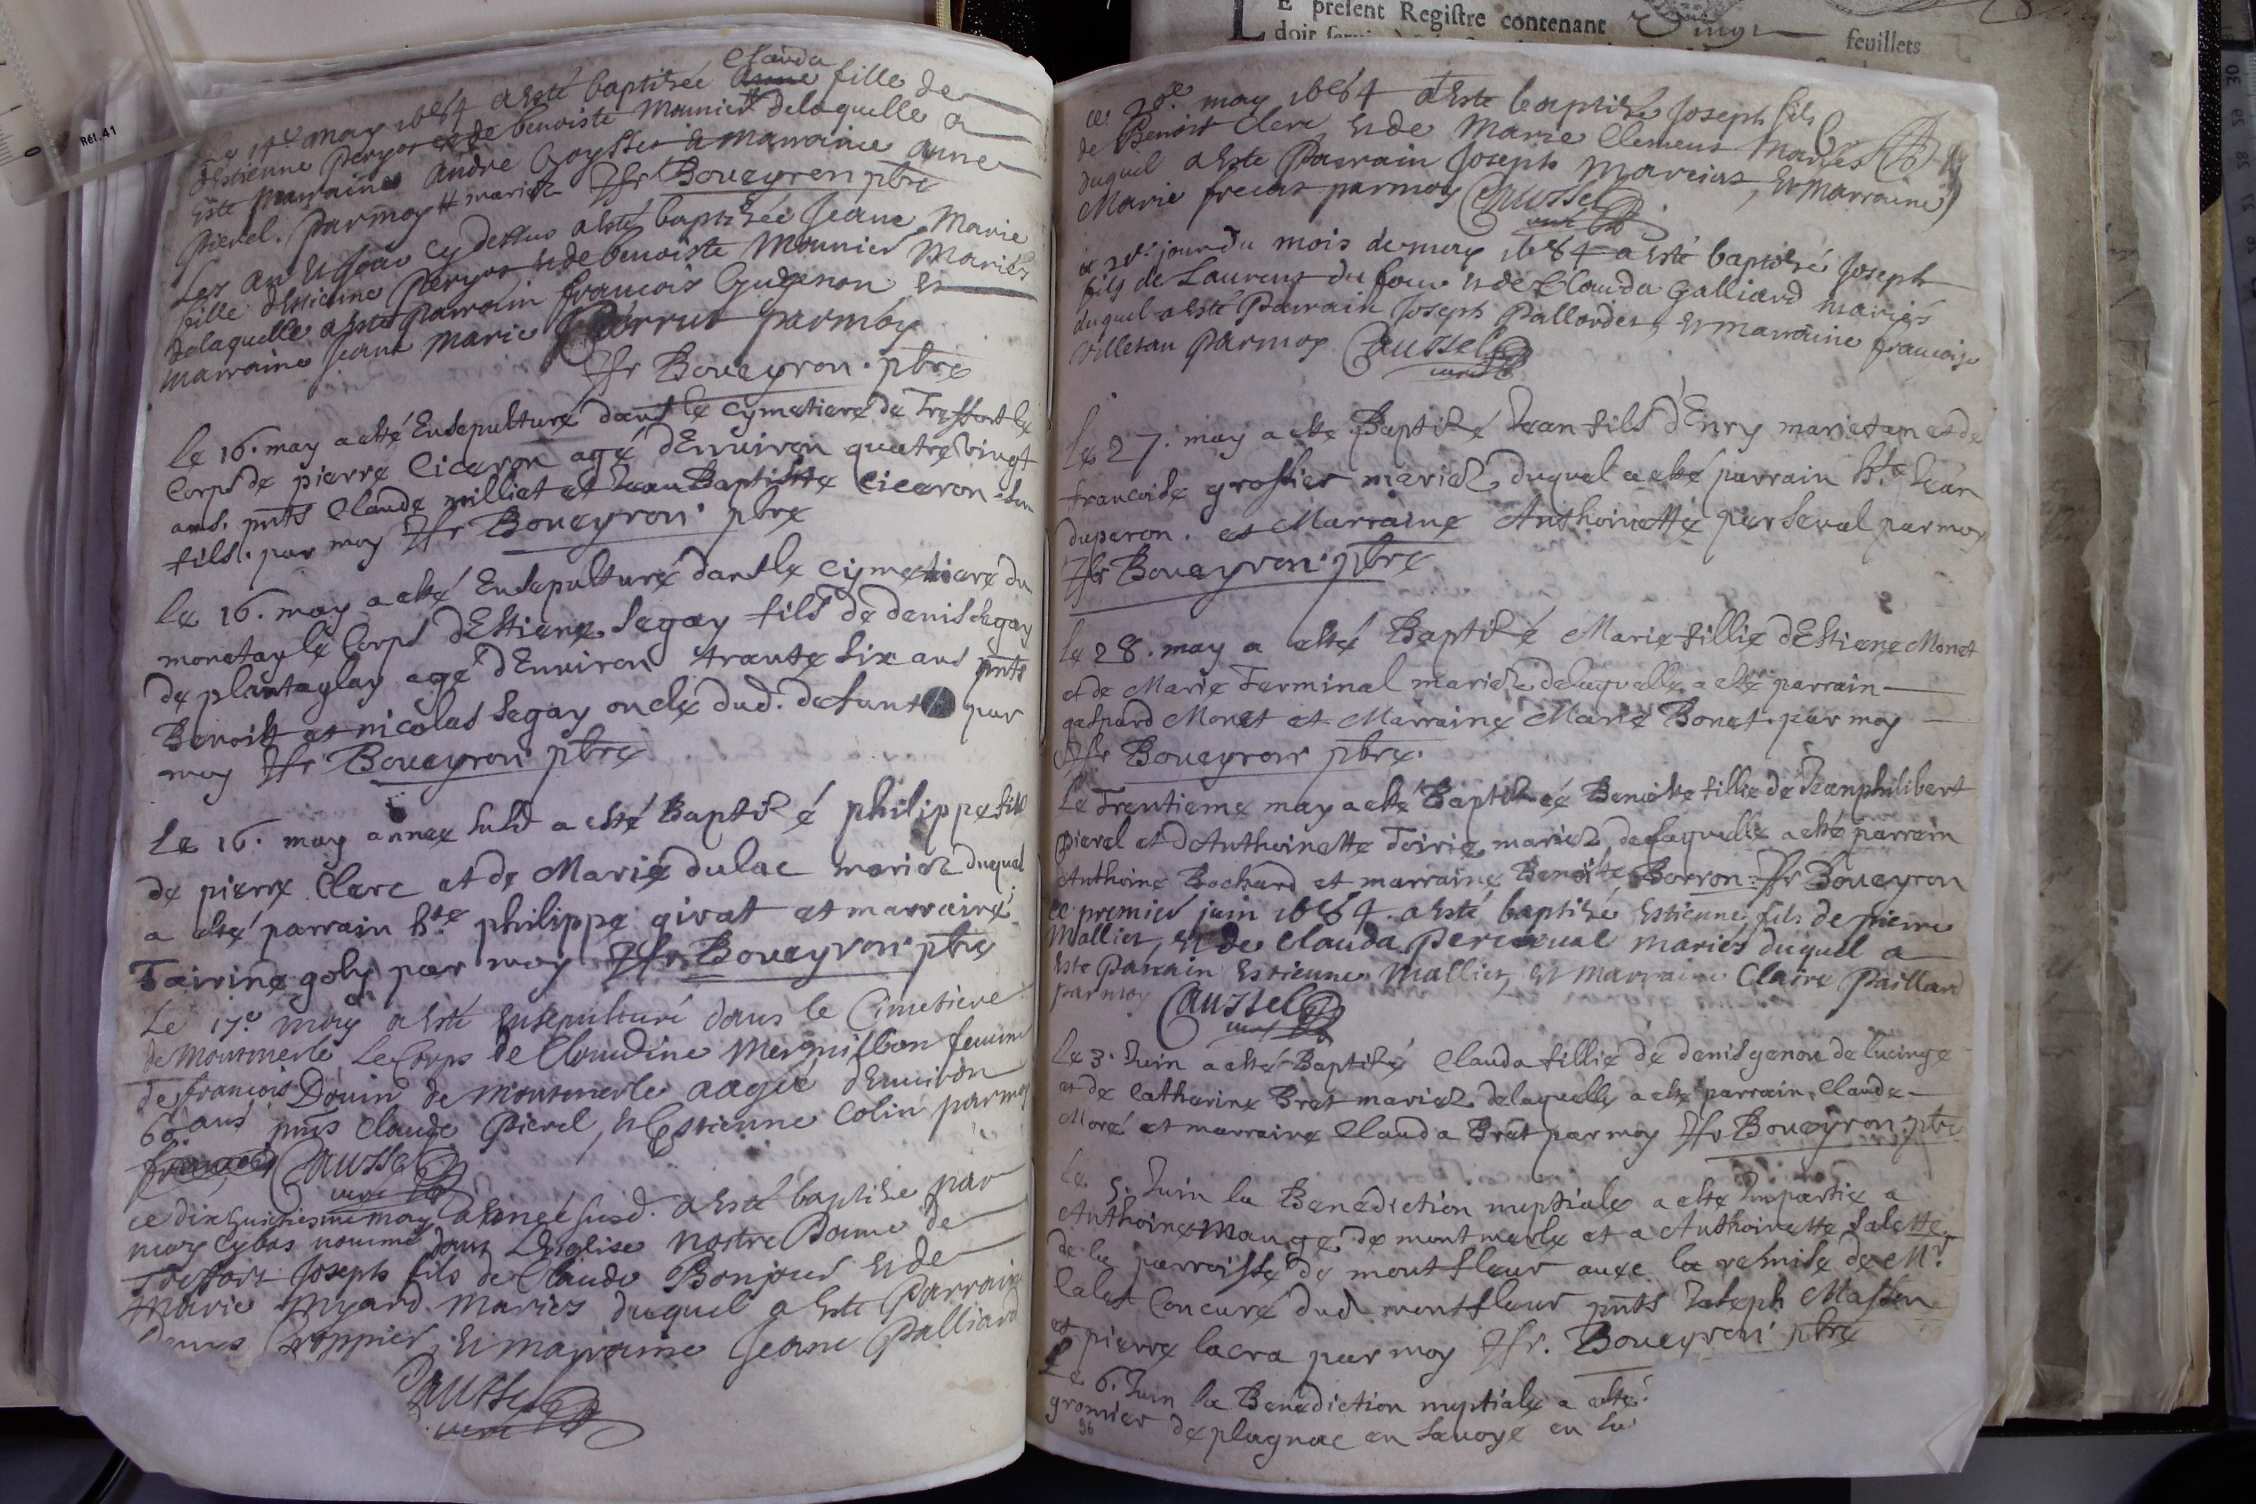 Réf. 41
E present Registre contenant Vingt feuillets
Le 14e may 1684 a esté baptisée Clauda fille de
d'Estienne Peryos et de benoiste Mounier delaquelle a
Esté Parrain André Goyffet & marraine anne
Pierel. Parmoy # mariez Jfr Boueyron pbre
Les an & Jour cy dessus a esté baptisée Jeane Marie
fille d'Estienne Peryos & de benoiste Mounier Mariés
delaquelle a esté parrain francois Gugenon et
marraine Jeane Marie Perrut parmoy
Jfr Boueyron. pbre
le 16. may a esté Ensepulturé dans le Cymetiere de Treffort le
Corps de pierre Ciceron agé d'Environ quatre vingt
ans. pnts Claude milliet et Jean Baptiste Ciceron son
fils. par moy Jfr Boueyron pbre
le 16. may a esté Ensepulturé dans le Cymetiere du
monetay le Corps d'Estiene Segay fils de denis Segay
de plantaglay agé d'Environ trante six ans pnts
Benoist et nicolas Segay oncle dud. defunt par
moy Jfr Boueyron pbre
le 16. may annee susd a esté Baptisé philippe fils
de pierre Clerc et de Marie dulac mariez duquel
a esté parrain hte philippe girat et marraine
Tairine goly par moy Jfr Boueyron pbre
Le 17e may a esté Ensepulturé dans le Cimetiere
de Montmerle Le Corps de Claudine Merguillon femme
de francois Douin de Montmerle aagée d'Environ
60 ans pnts Claude Pierel, & Estienne Colin parmoy
Caussel
curé
ce dix huictiesme may année susd. a esté baptisé par
moy cybas nommé dans L'église nostre Dame de
Treffort Joseph fils de Claude Bonjour & de
Marie Myard mariés duquel a esté Parrain
Croppier, & marraine Jeane Palliard
Caussel
curé
ce 20e may 1684 a esté baptisé Joseph fils
de Benoist Clerc & de Marie Clemens Mariés
duquel a esté Parrain Joseph Marcius, & Marraine
Marie frecus parmoy Caussel
curé
jour du mois de may 1684 a esté baptisé Joseph
fils de Laurens du four & de Clauda Galliard mariés
duquel a esté Parrain Joseph Pallordet, & marraine francoise
Villetau Parmoy Caussel
curé
Le 27. may a esté Baptisé Jean fils d'Enry marietan et de
francoise grossier mariez duquel a esté parrain hte Jean
duperon. et Marraine Anthoinette perseval par moy
Jfr Boueyron pbre
Le 28. may a esté Baptisé Marie fillie d'Estiene Monet
et de Marie Terminal mariez delaquelle a esté parrain
gaspard Monet et Marraine Marie Bonet. par moy
Jfr Boueyron pbre.
Le Trentieme may a esté Baptisée Benoiste fillie de Jeanphilibert
Pierel et d'Anthoinette Toirie mariez, delaquelle a esté parrain
Anthoine Bochard et marraine Benoiste Borron. Jfr Boueyron
ce premier juin 1684 a esté baptisé Estienne fils de pierre
Mallier, & de Clauda Perceual mariés duquel a
Esté Parrain Estienne Mallier, & marraine Claire Paillard
parmoy Caussel
curé
Le 3. Juin a esté Baptisé Clauda fillie de denis genou de lucinge
et de Catherine Brat mariez delaquelle a esté parrain Claude
Moré et marraine Clauda Brat par moy Jfr Boueyron. pbre
Le 5. Juin la Benediction nuptiale a esté Impartie a
Anthoine Mauge de montmerle et a Anthoinette Salette
de la parroisse de montfleur auec la remise de Mr
lalet Concuré dud. montfleur pnts Joseph Masson
et pierre lacra par moy Jfr. Boueyron pbre
Le 6. Juin la Benediction nuptiale a esté
gromier de plagnac en Sauoye en
96